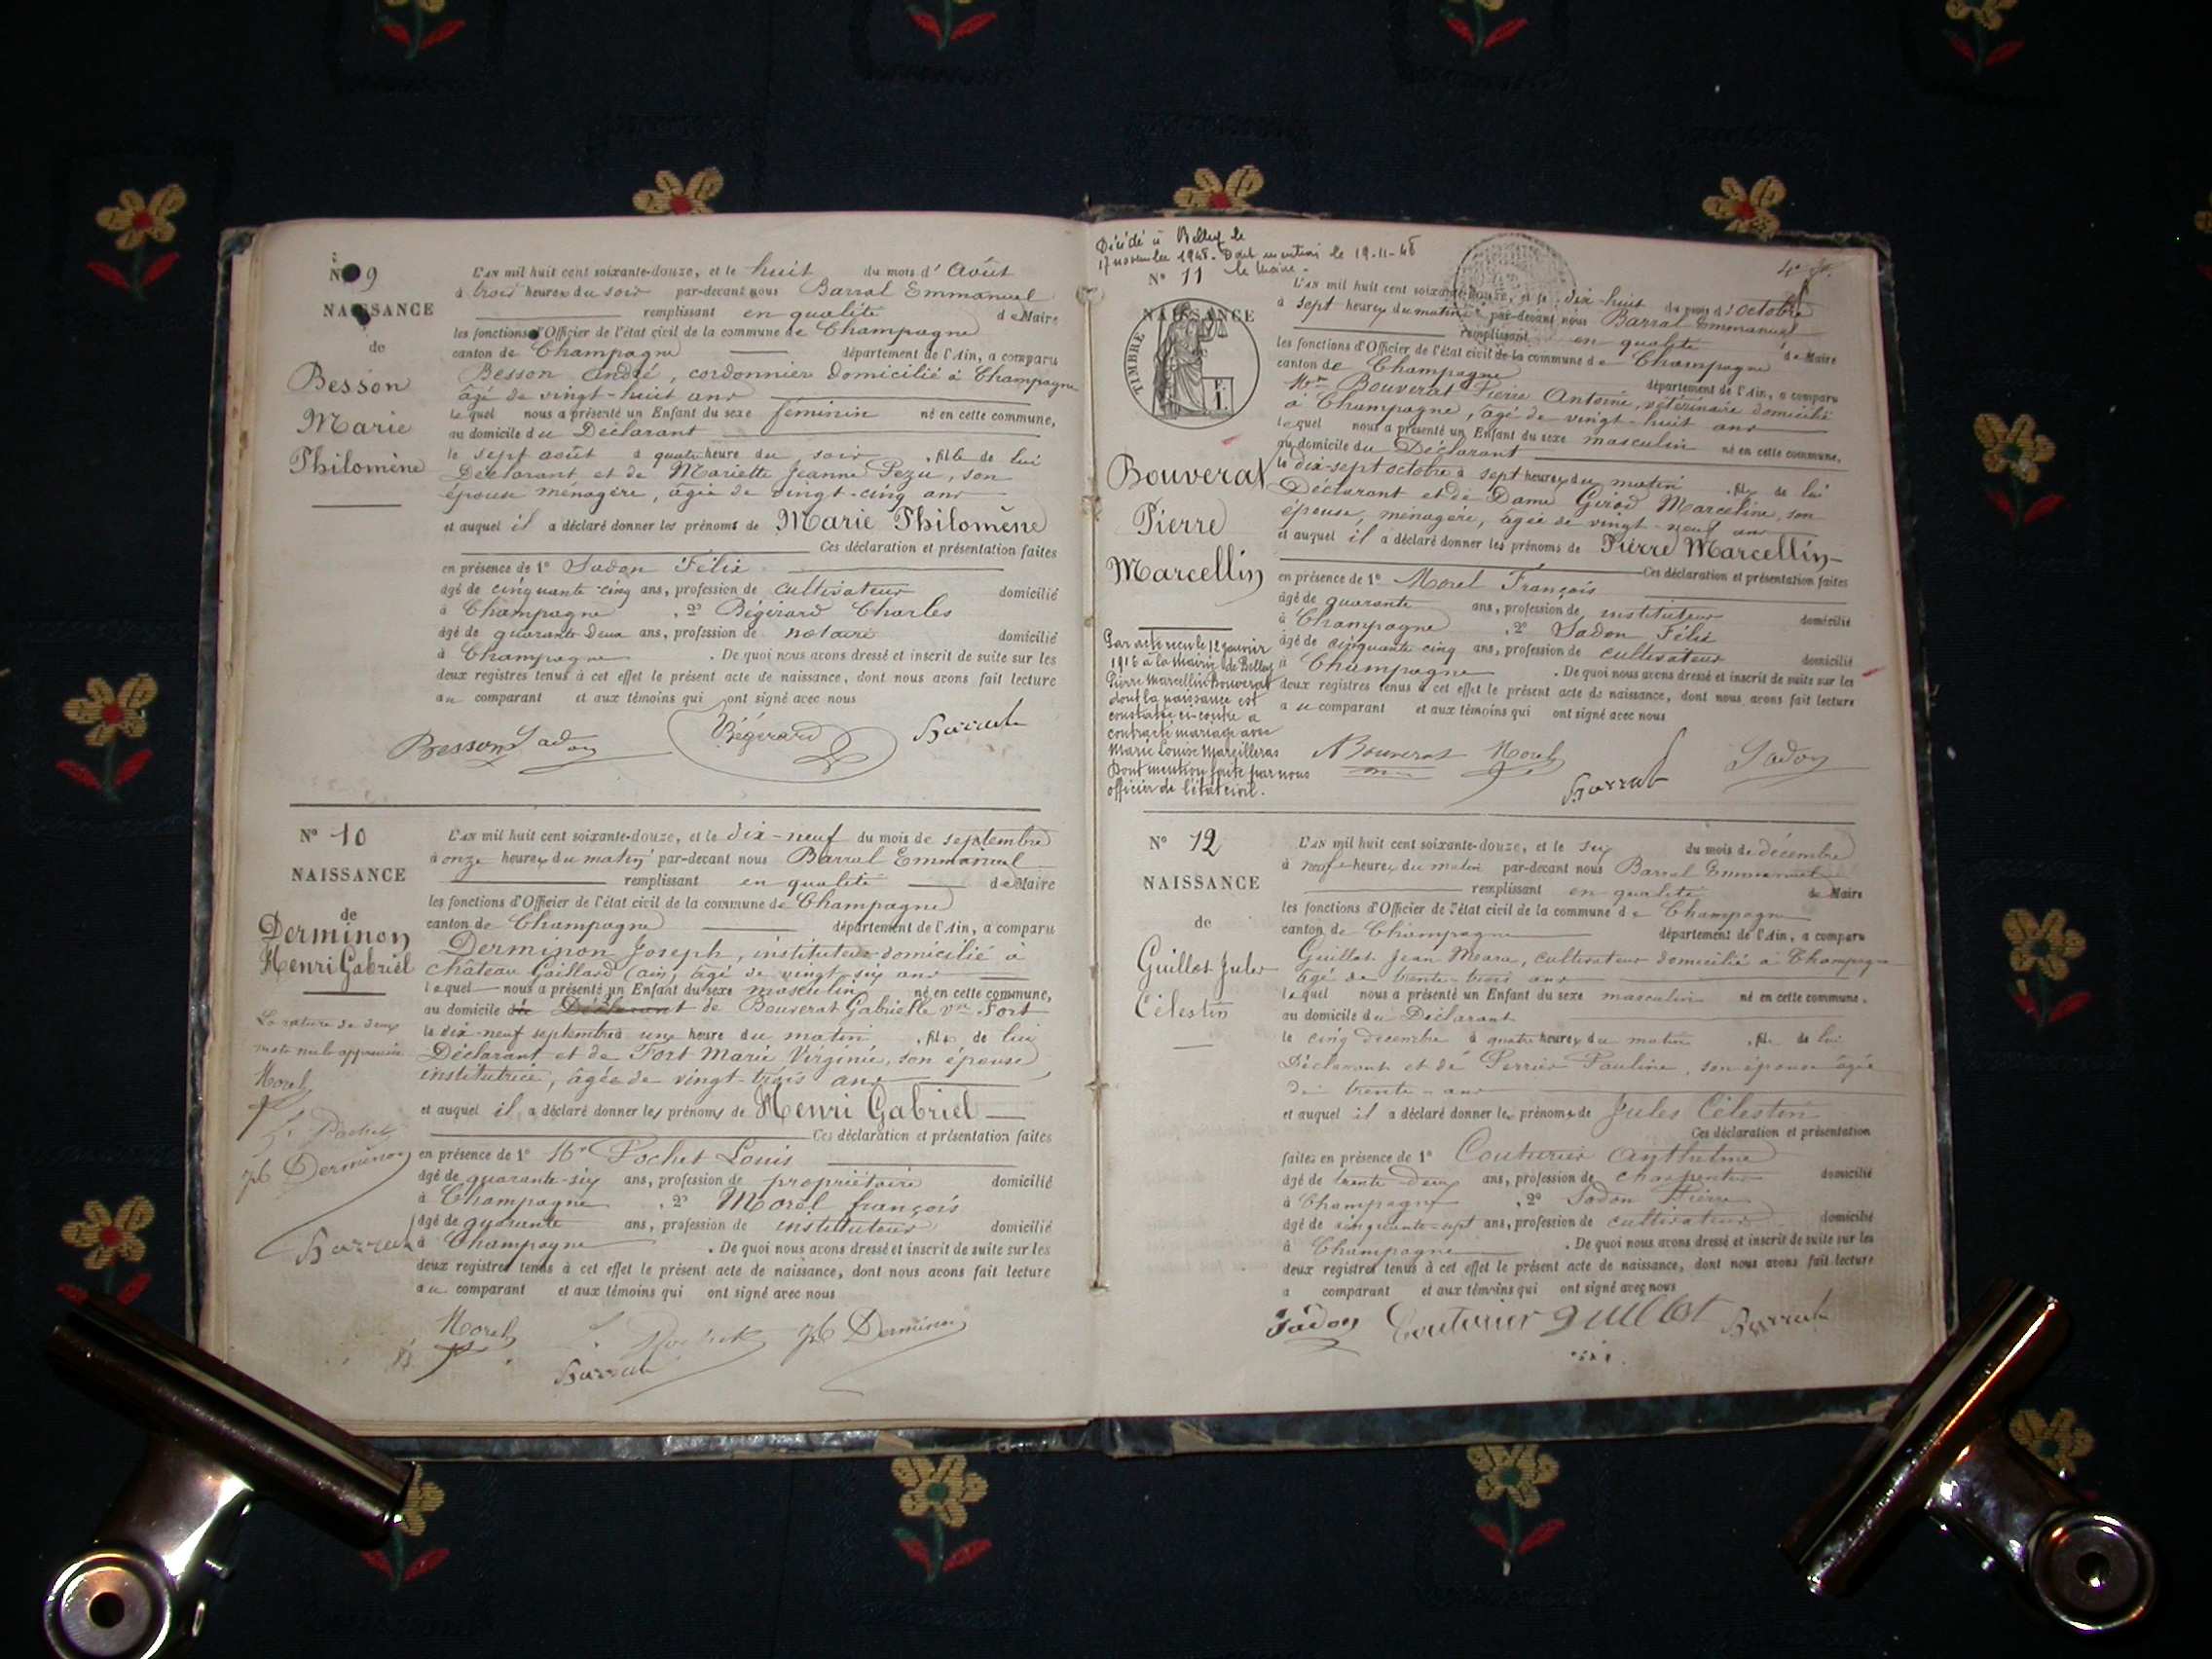 N° 9
NAISSANCE
de
Besson
Marie
Philomène
L'AN mil huit cent soixante-douze, et le huit du mois d'Août
à trois heures du soir par-devant nous Barral Emmanuel
remplissant en qualité de Maire
les fonctions d'Officier de l'état civil de la commune de Champagne
canton de Champagne département de l'Ain, a comparu
Besson André, cordonnier domicilié à Champagne
âgé de vingt-huit ans
lequel nous a présenté un Enfant du sexe féminin né en cette commune,
au domicile du Déclarant
le sept août à quatre heure du soir, fille de lui
Déclarant et de Mariette Jeanne Pezu, son
épouse ménagère, âgée de vingt-cinq ans
et auquel il a déclaré donner les prénoms de Marie Philomène
Ces déclaration et présentation faites
en présence de 1° Sadon Félix
âgé de cinquante-cinq ans, profession de cultivateur domicilié
à Champagne, 2° Bégérard Charles
âgé de quarante-deux ans, profession de notaire domicilié
à Champagne. De quoi nous avons dressé et inscrit de suite sur les
deux registres tenus à cet effet le présent acte de naissance, dont nous avons fait lecture
au comparant et aux témoins qui ont signé avec nous
Besson Sadon Bégérard Barral
N° 10
NAISSANCE
de
Derminon
Henri Gabriel
La rature de deux
mots nuls approuvée
Morel
Jh Derminon
Barral
L'AN mil huit cent soixante-douze, et le dix-neuf du mois de septembre
à onze heures du matin par-devant nous Barral Emmanuel
remplissant en qualité de Maire
les fonctions d'Officier de l'état civil de la commune de Champagne
canton de Champagne département de l'Ain, a comparu
Derminon Joseph, instituteur domicilié à
château Gaillard (ain) âgé de vingt-six ans
lequel nous a présenté un Enfant du sexe masculin né en cette commune,
au domicile du Déclarant de Bouverat Gabrielle vve Fort
le dix-neuf septembre à une heure du matin, fils de lui
Déclarant et de Fort Marie Virginie, son épouse
institutrice, âgée de vingt-trois ans
et auquel il a déclaré donner les prénoms de Henri Gabriel
Ces déclaration et présentation faites
en présence de 1° Mr Pochet Louis
âgé de quarante-six ans, profession de propriétaire domicilié
à Champagne, 2° Morel françois
âgé de quarante ans, profession de instituteur domicilié
à Champagne. De quoi nous avons dressé et inscrit de suite sur les
deux registres tenus à cet effet le présent acte de naissance, dont nous avons fait lecture
au comparant et aux témoins qui ont signé avec nous
Morel Pochet Jh Derminon
Barral
Décédé à Belley le
17 novembre 1948. Dont mention le 19-11-48
le Maire.
N° 11
NAISSANCE
TIMBRE
Bouverat
Pierre
Marcellin
Par acte reçu le 12 janvier
1916 à la Mairie de Belley
Pierre Marcellin Bouverat
dont la naissance est
constatée ci-contre a
contracté mariage avec
Marie Louise Marcilleras
Dont mention faite par nous
officier de l'état civil.
L'AN mil huit cent soixante-douze, et le dix-huit du mois d'octobre
à sept heures du matin par-devant nous Barral Emmanuel
remplissant en qualité de Maire
les fonctions d'Officier de l'état civil de la commune de Champagne
canton de Champagne département de l'Ain, a comparu
Mr Bouverat Pierre Antoine, vétérinaire domicilié
à Champagne, âgé de vingt-huit ans
lequel nous a présenté un Enfant du sexe masculin né en cette commune,
au domicile du Déclarant
le dix-sept octobre à sept heures du matin, fils de lui
Déclarant et de Dame Girod Marceline, son
épouse, ménagère, âgée de vingt-neuf ans
et auquel il a déclaré donner les prénoms de Pierre Marcellin
Ces déclaration et présentation faites
en présence de 1° Morel François
âgé de quarante ans, profession de instituteur domicilié
à Champagne, 2° Sadon Félix
âgé de cinquante cinq ans, profession de cultivateur domicilié
à Champagne. De quoi nous avons dressé et inscrit de suite sur les
deux registres tenus à cet effet le présent acte de naissance, dont nous avons fait lecture
au comparant et aux témoins qui ont signé avec nous
ABouverat Morel Barral Sadon
N° 12
NAISSANCE
de
Guillot Jules
Célestin
L'AN mil huit cent soixante-douze, et le six du mois de décembre
à neuf heures du matin par-devant nous Barral Emmanuel
remplissant en qualité de Maire
les fonctions d'Officier de l'état civil de la commune de Champagne
canton de Champagne département de l'Ain, a comparu
Guillot Jean Marie, cultivateur domicilié à Champagne
âgé de trente-trois ans
lequel nous a présenté un Enfant du sexe masculin né en cette commune,
au domicile du Déclarant
le cinq décembre à quatre heures du matin, fils de lui
Déclarant et de Perrier Pauline, son épouse âgée
de trente ans
et auquel il a déclaré donner les prénoms de Jules Célestin
Ces déclaration et présentation
faites en présence de 1° Couturier Anthelme
âgé de trente-deux ans, profession de charpentier domicilié
à Champagne, 2° Sadon Pierre
âgé de cinquante-sept ans, profession de cultivateur domicilié
à Champagne. De quoi nous avons dressé et inscrit de suite sur les
deux registres tenus à cet effet le présent acte de naissance, dont nous avons fait lecture
a comparant et aux témoins qui ont signé avec nous
Sadon Couturier guillot Barral